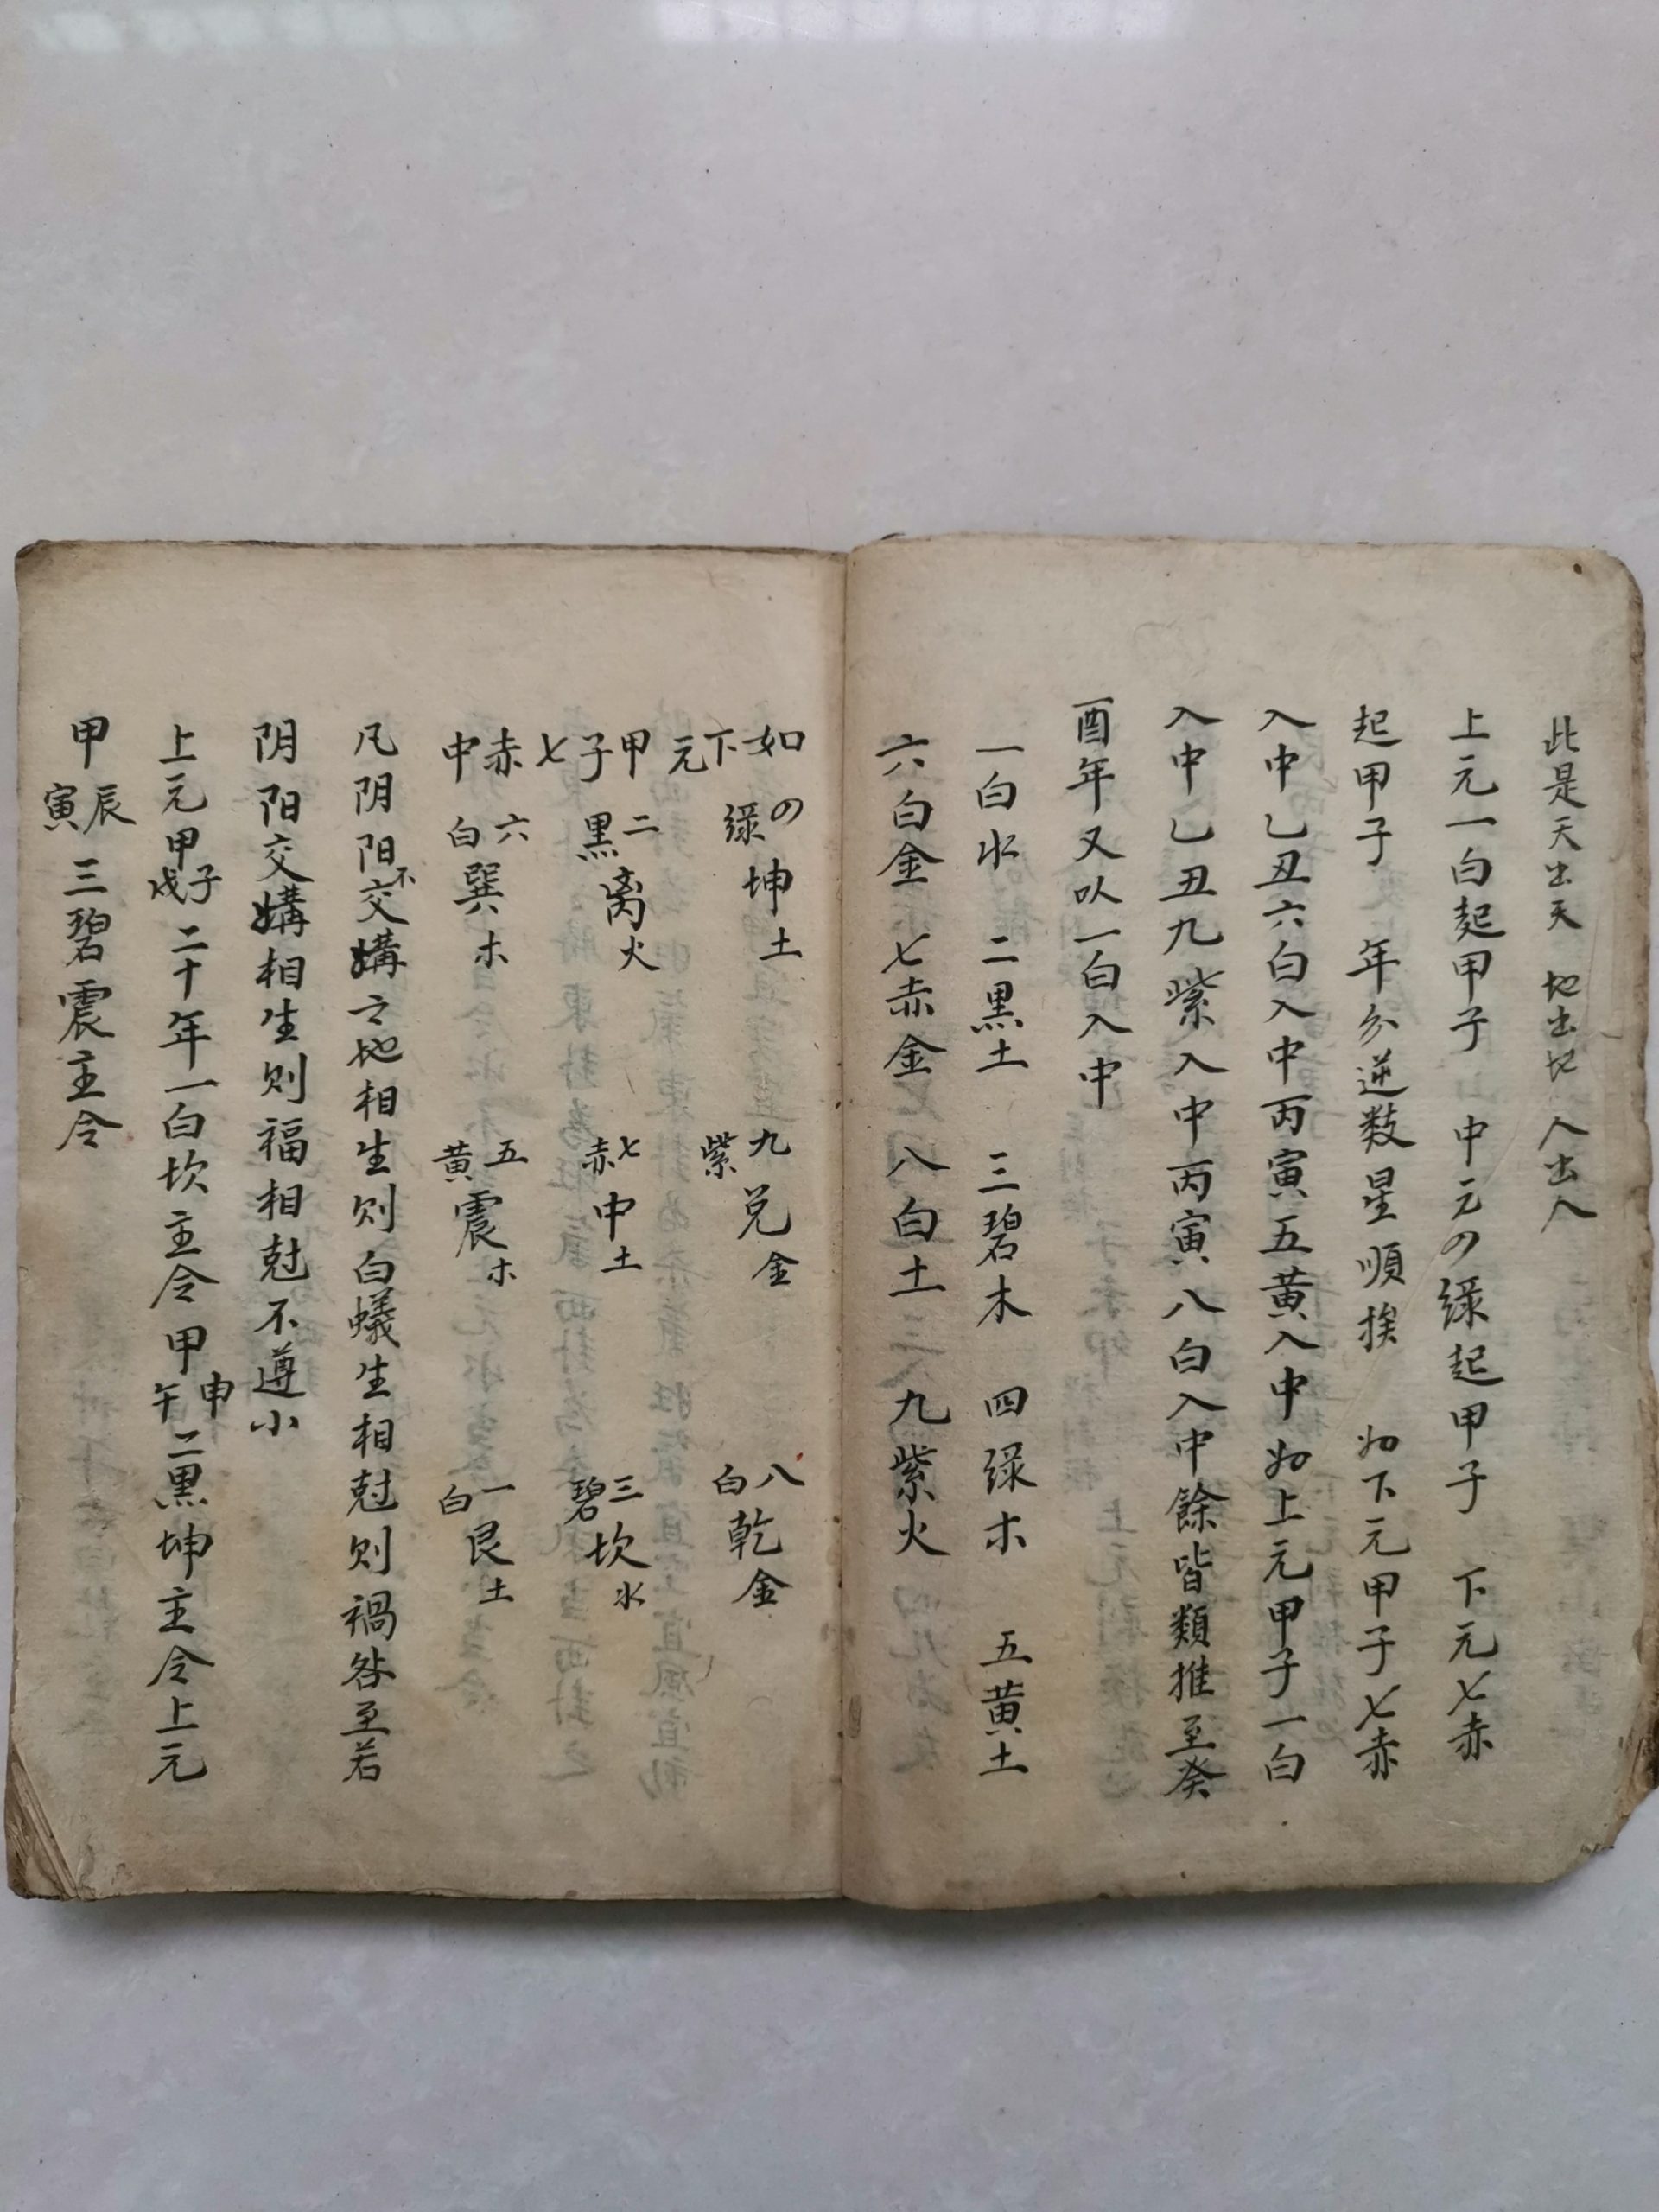 此是天出天 地出地 人出人
上元一白起甲子 中元の綠起甲子 下元七赤
起甲子 年分逆数星順挨 如下元甲子七赤
入中乙丑六白入中丙寅五黄入中如上元甲子一白
入中乙丑九紫入中丙寅八白入中餘皆類推至癸
酉年又以一白入中
一白水 二黒土 三碧木 四綠木 五黄土
六白金 七赤金 八白土 九紫火
如 の綠坤土 九紫兑金 八白乾金
下元
甲子七 二黒离火 七赤中土 三碧坎水
赤中 六白巽木 五黄震木 一白艮土
凡阴阳不交媾之地相生则白蟻生相尅则禍咎至若
阴阳交媾相生则福相尅不遵小
上元甲子戌二十年一白坎主令甲申午二黒坤主令上元
甲辰寅三碧震主令